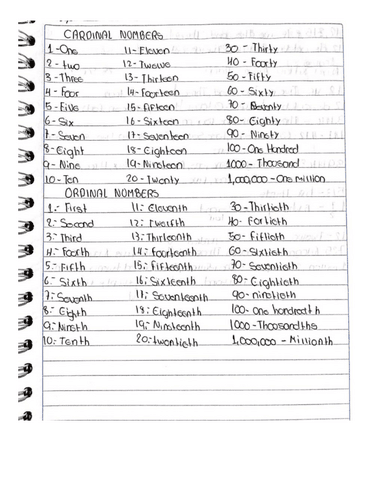 CARDINAL NUMBERS
1-One 11-Eleven 30-Thirty
2-two 12-Twelve 40-Foorty
3-Three 13-Thirteen 50-Fifty
4-Foor 14-Foorteen 60-Sixty
5-Five 15-Fifteen 70-Seventy
6-Six 16-Sixteen 80-Eighty
7-Seven 17-Seventeen 90-Ninety
8-Eight 18-Eighteen 100-One Hondred
9-Nine 19-Nineteen 1000-Thoosand
10-Ten 20-Twenty 1,000,000-One million
ORDINAL NUMBERS
1.- First 11.- Eleventh 30-Thirtieth
2.- Second 12.- twelfth 40-Fortieth
3.- Third 13.- Thirteenth 50-fiftieth
4.- Foorth 14.- foorteenth 60-Sixtieth
5.- Fifth 15.- fifteenth 70-Seventieth
6.- Sixth 16.- Sixteenth 80-Eightieth
7.- Seventh 17.- Seventeenth 90-ninetieth
8.- Eighth 18.- Eighteenth 100-One hondreth
9.- Nineth 19.- Nineteenth 1000-Thoosandths
10.- Tenth 20.- twentieth 1,000,000-Millionth